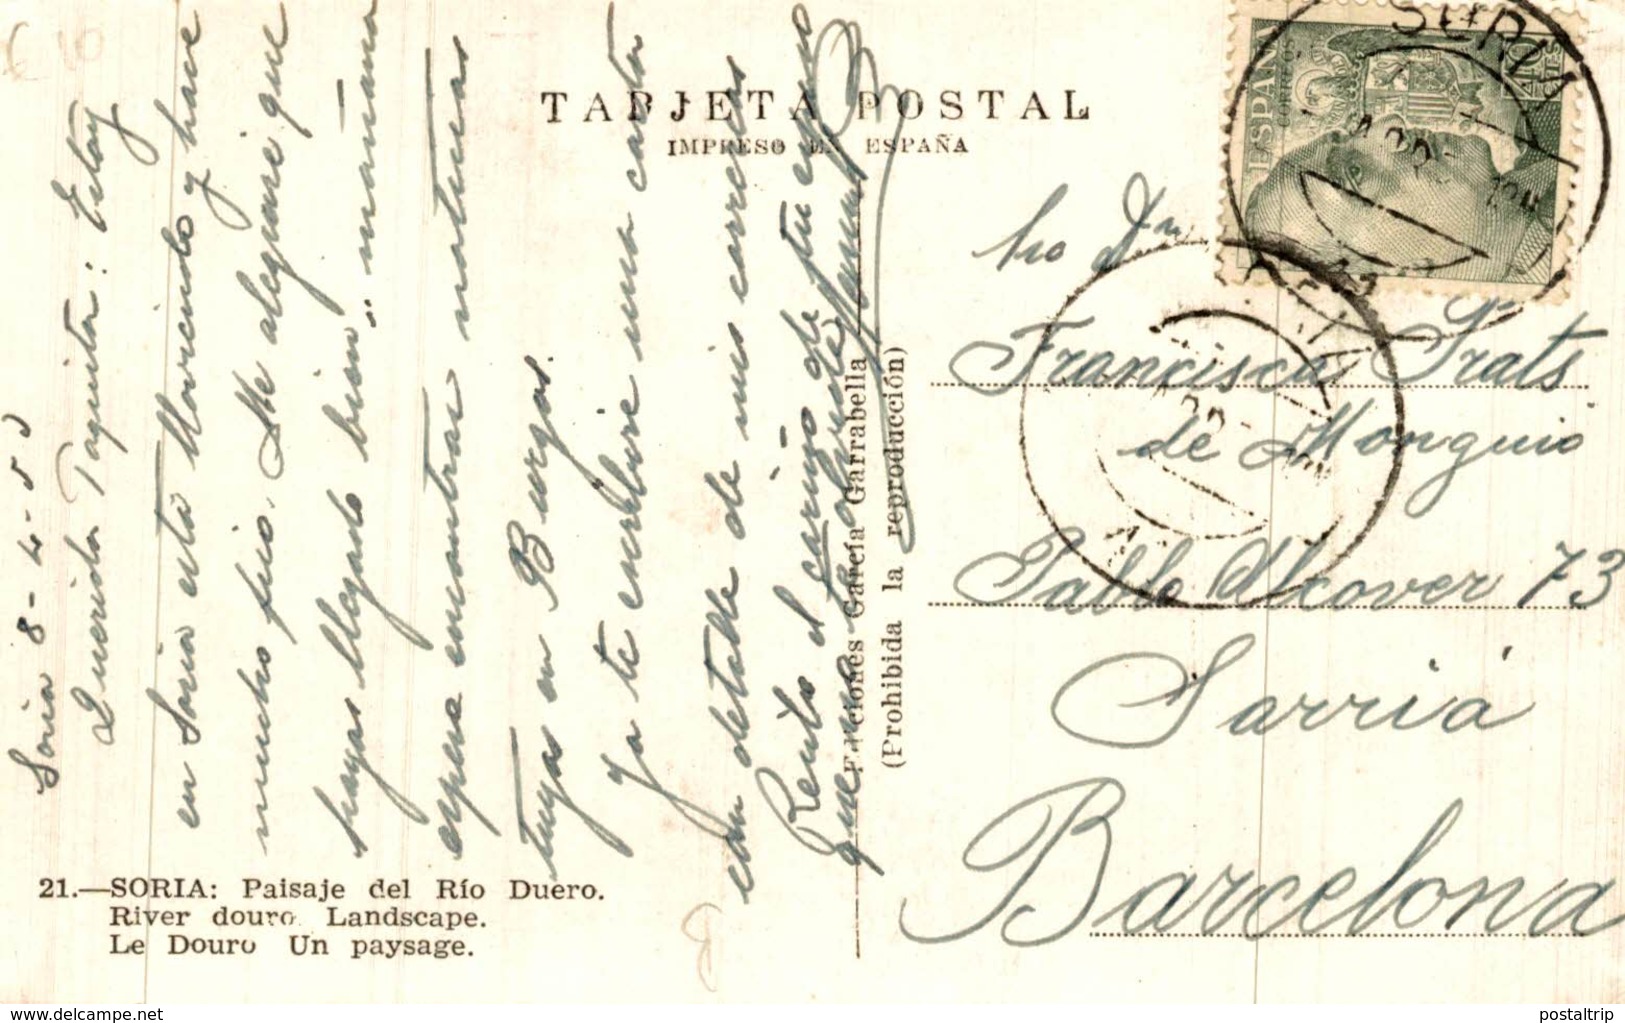 TARJETA POSTAL
IMPRESO EN ESPAÑA
ESPAÑA
CORREOS
40 CTS
SORIA
SORIA
Soria 8-4-5
Querida Paquita: Estoy
en Soria esta lloviendo y hace
mucho frio. Me alegrare que
hayas llegado bien.. mañana
espero encontrar noticias
tuyas en Burgos.
Ya te escribire una carta
con detalle de mis correrias
Recibe el cariño de tu esposo
que no te olvida
Manuel
Ediciones García Garrabella
(Prohibida la reproducción)
Sra Dña
Francisca Prats
de Monguió
Pablo Alcover 73
Sarriá
Barcelona
21.—SORIA: Paisaje del Río Duero.
River douro. Landscape.
Le Douro Un paysage.
www.delcampe.net
postaltrip